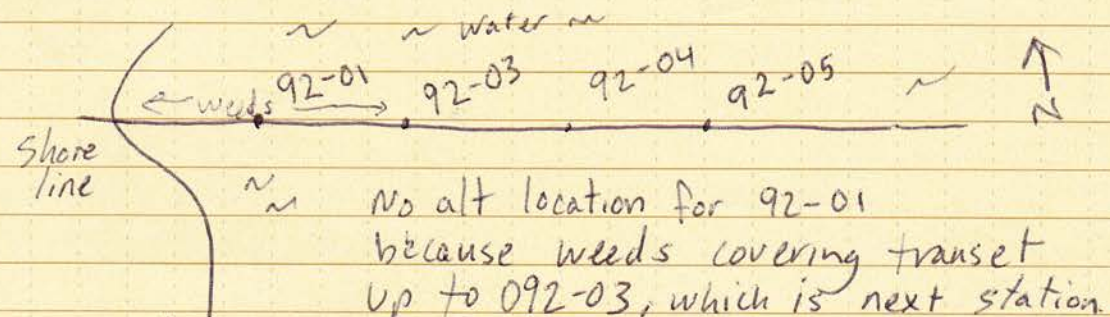 ~ ~ water ~
92-01 92-03 92-04 92-05 ~
← weeds →
N
Shore
line
~
~ No alt location for 92-01
because weeds covering transet
up to 092-03, which is next station.